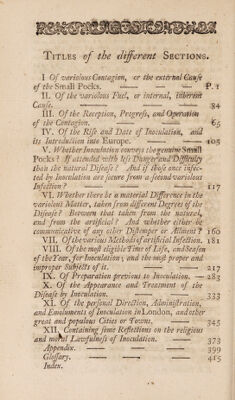 TITLES of the different SECTIONS.
I Of variolous Contagion, or the external Cause
of the Small Pocks. P. 1
II. Of the variolous Fuel, or internal, inherent
Cause. 34
III. Of the Reception, Progress, and Operation
of the Contagion. 65
IV. Of the Rise and Date of Inoculation, and
its Introduction into Europe. 105
V. Whether Inoculation conveys the genuine Small
Pocks? If attended with less Danger and Difficulty
than the natural Disease? And if those once infec-
ted by Inoculation are secure from a second variolous
Infection? 117
VI. Whether there be a material Difference in the
variolous Matter, taken from different Degrees of the
Disease? Between that taken from the natural,
and from the artificial? And whether either be
communicative of any other Distemper or Ailment? 160
VII. Of the various Methods of artificial Infection, 181
VIII. Of the most eligible Time of Life, and Season
of the Year, for Inoculation; and the most proper and
improper Subjects of it. 217
IX. Of Preparation previous to Inoculation. 283
X. Of the Appearance and Treatment of the
Disease by Inoculation. 333
XI. Of the personal Direction, Administration,
and Emoluments of Inoculation in London, and other
great and populous Cities or Towns. 345
XII. Containing some Reflections on the religious
and moral Lawfulness of Inoculation. 373
Appendix. 399
Glossary. 415
Index.